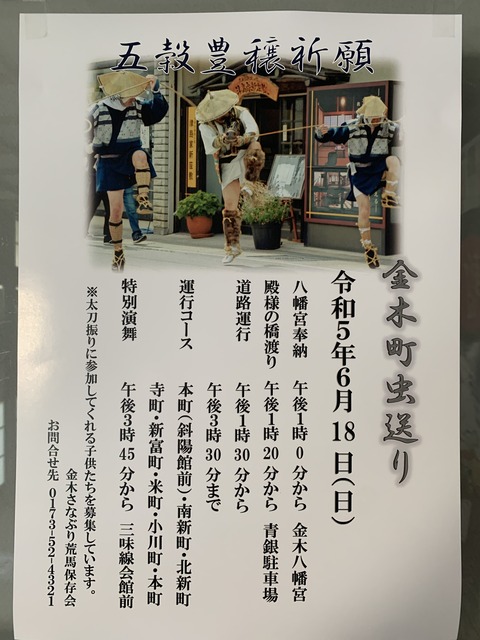 五穀豊穣祈願
金木町虫送り
令和5年6月18日(日)
八幡宮奉納 午後1時0分から 金木八幡宮
殿様の橋渡り 午後1時20分から 青銀駐車場
道路運行 午後1時30分から
午後3時30分まで
運行コース 本町(斜陽館前)・南新町・北新町
寺町・新富町・米町・小川町・本町
特別演舞 午後3時45分から 三味線会館前
※太刀振りに参加してくれる子供たちを募集しています。
金木さなぶり荒馬保存会
お問合せ先 0173-52-4321